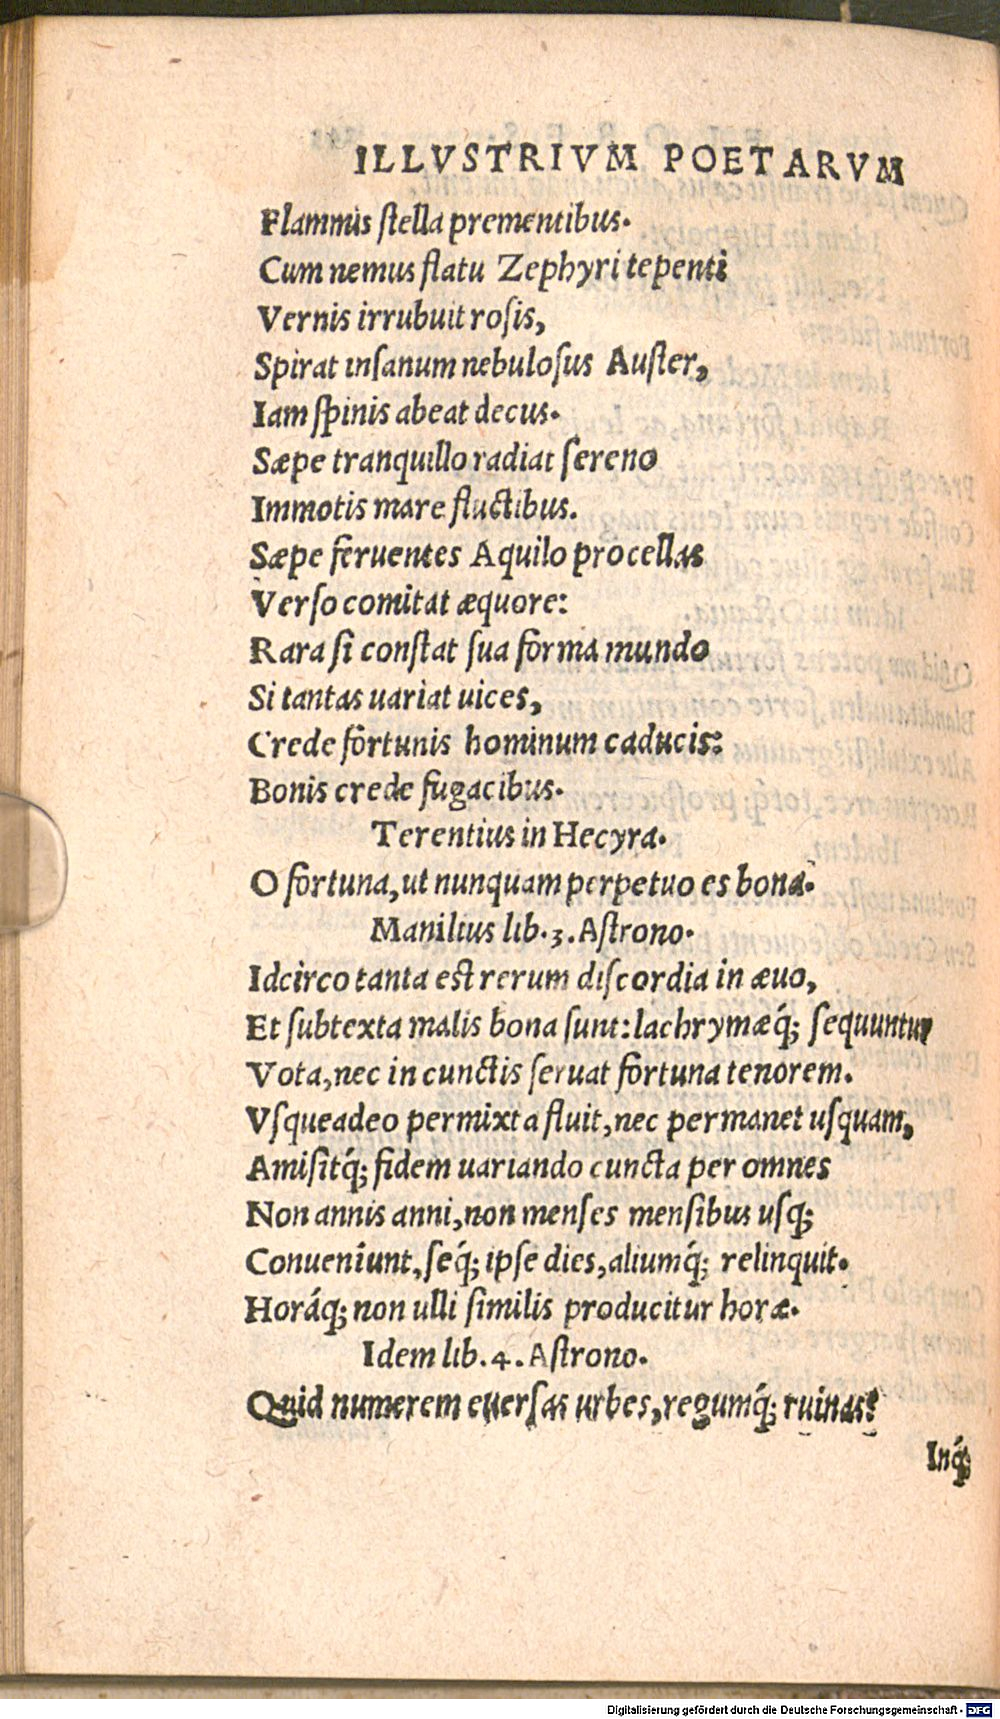 ILLVSTRIVM POETARVM
Flammis stella prementibus.
Cum nemus flatu Zephyri tepenti
Vernis irrubuit rosis,
Spirat insanum nebulosus Auster,
Iam spinis abeat decus.
Sæpe tranquillo radiat sereno
Immotis mare fluctibus.
Sæpe feruentes Aquilo procellas
Verso comitat æquore:
Rara si constat sua forma mundo
Si tantas uariat uices,
Crede fortunis hominum caducis:
Bonis crede fugacibus.
Terentius in Hecyra.
O fortuna, ut nunquam perpetuo es bona.
Manilius lib. 3. Astrono.
Idcirco tanta est rerum discordia in æuo,
Et subtexta malis bona sunt: lachrymæq́; sequuntur
Vota, nec in cunctis seruat fortuna tenorem.
Vsqueadeo permixta fluit, nec permanet usquam,
Amisitq́; fidem uariando cuncta per omnes
Non annis anni, non menses mensibus usq;
Conueniunt, seq́; ipse dies, aliumq́; relinquit.
Horáq; non ulli similis producitur horæ.
Idem lib. 4. Astrono.
Quid numerem euersas urbes, regumq́; ruinas?
Inq́;
Digitalisierung gefördert durch die Deutsche Forschungsgemeinschaft - DFG